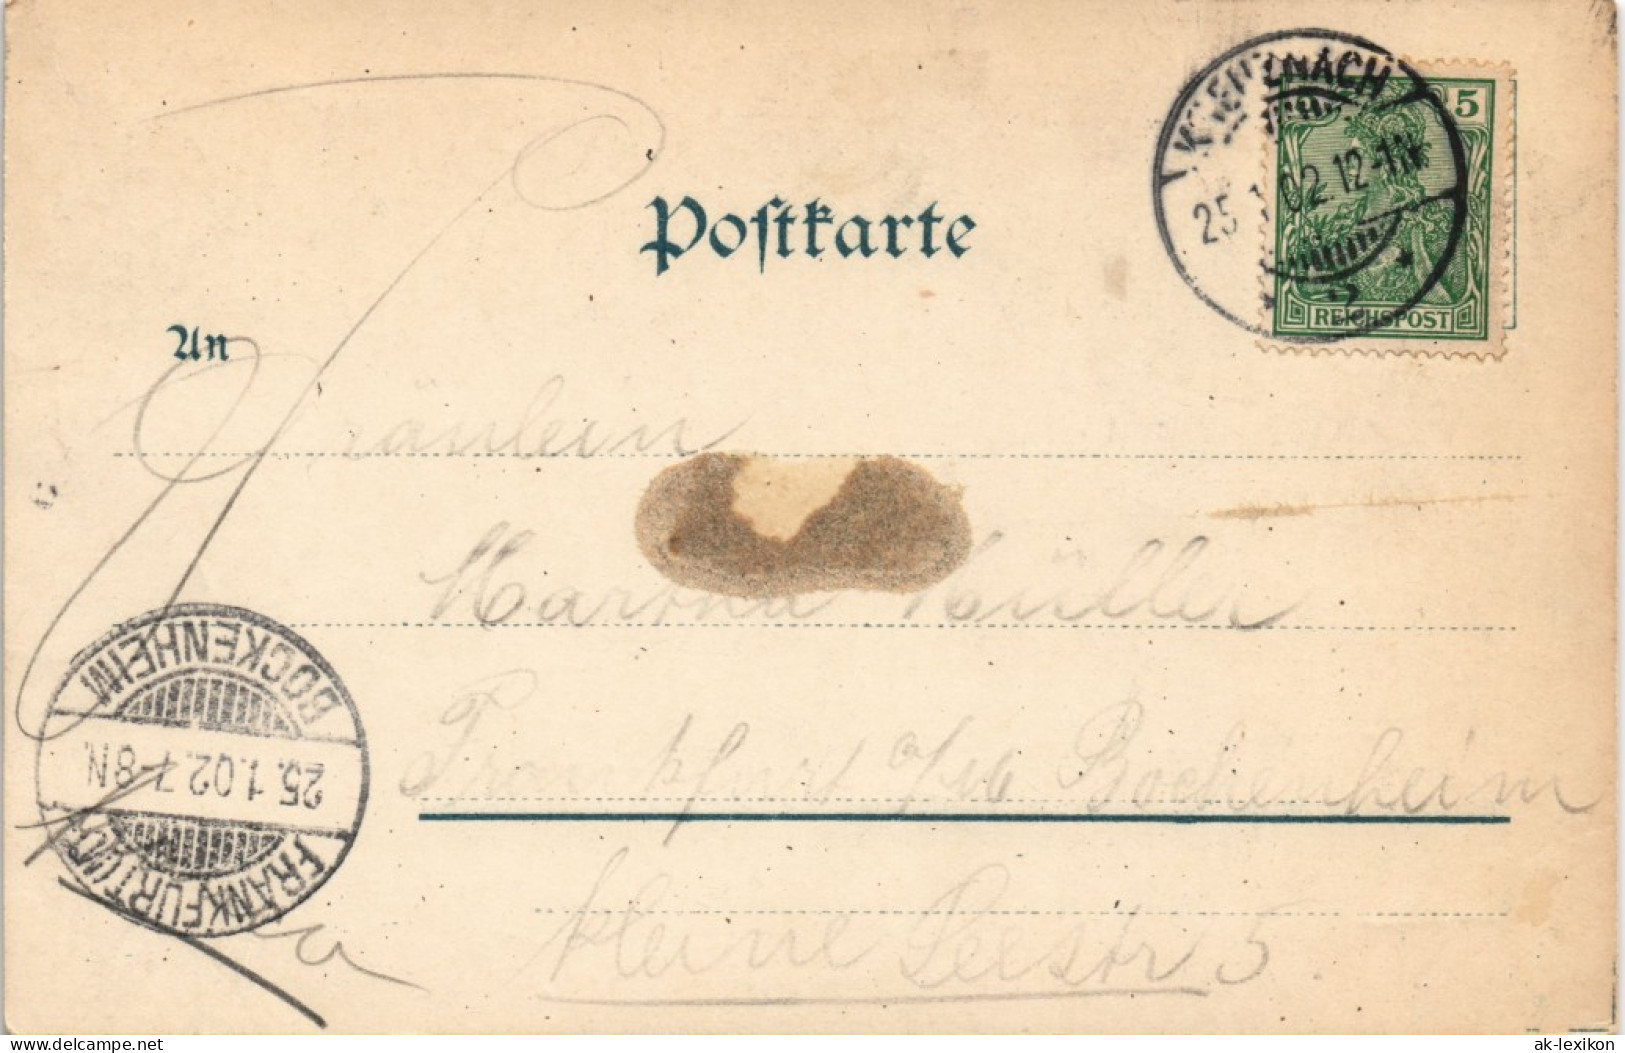 Postkarte
KREUZNACH
25 1.02. 12-1N
5
REICHSPOST
An
Fräulein
Martha Müller
Frankfurt a/M Bockenheim
kleine Seestr 5.
BOCKENHEIM
25.1.02.7-8N.
FRANKFURT (MAIN)
www.delcampe.net
ak-lexikon